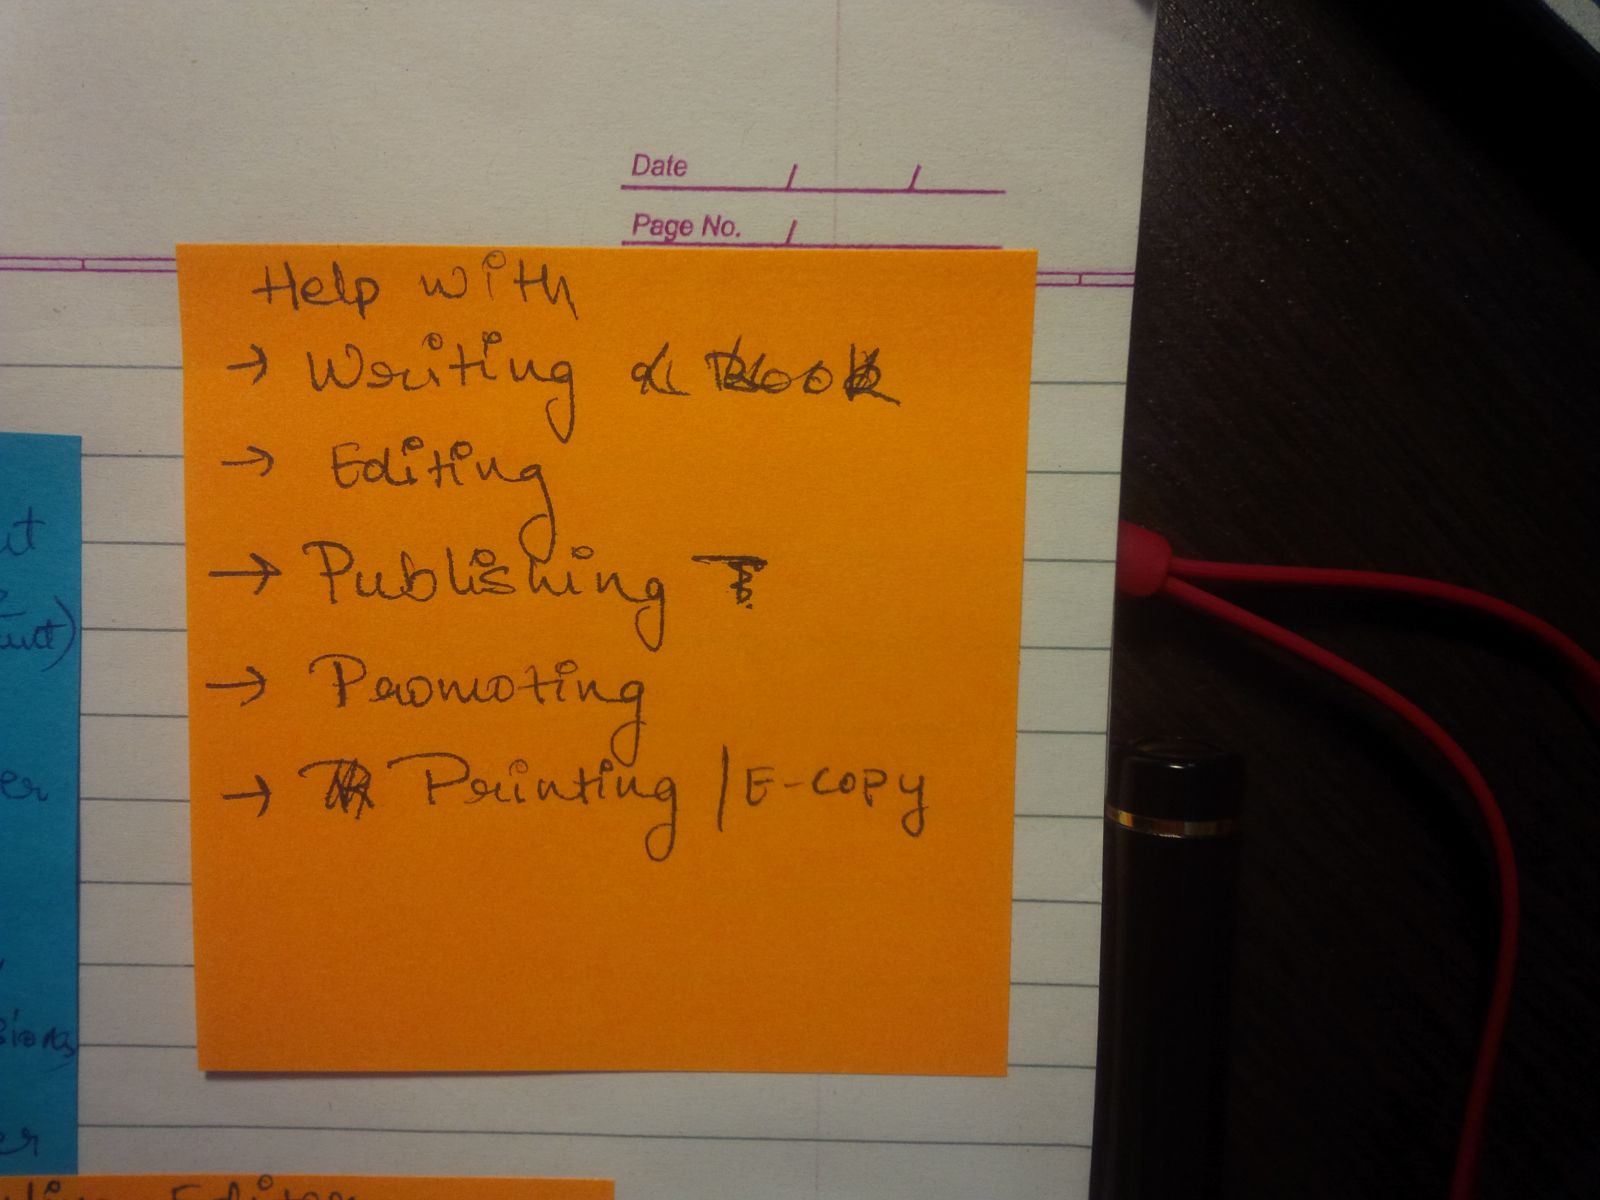 Date / /
Page No. /
Help with
→ Writing a book
→ Editing
→ Publishing
→ Promoting
→ Printing / E-copy
er
sions
er
Editor